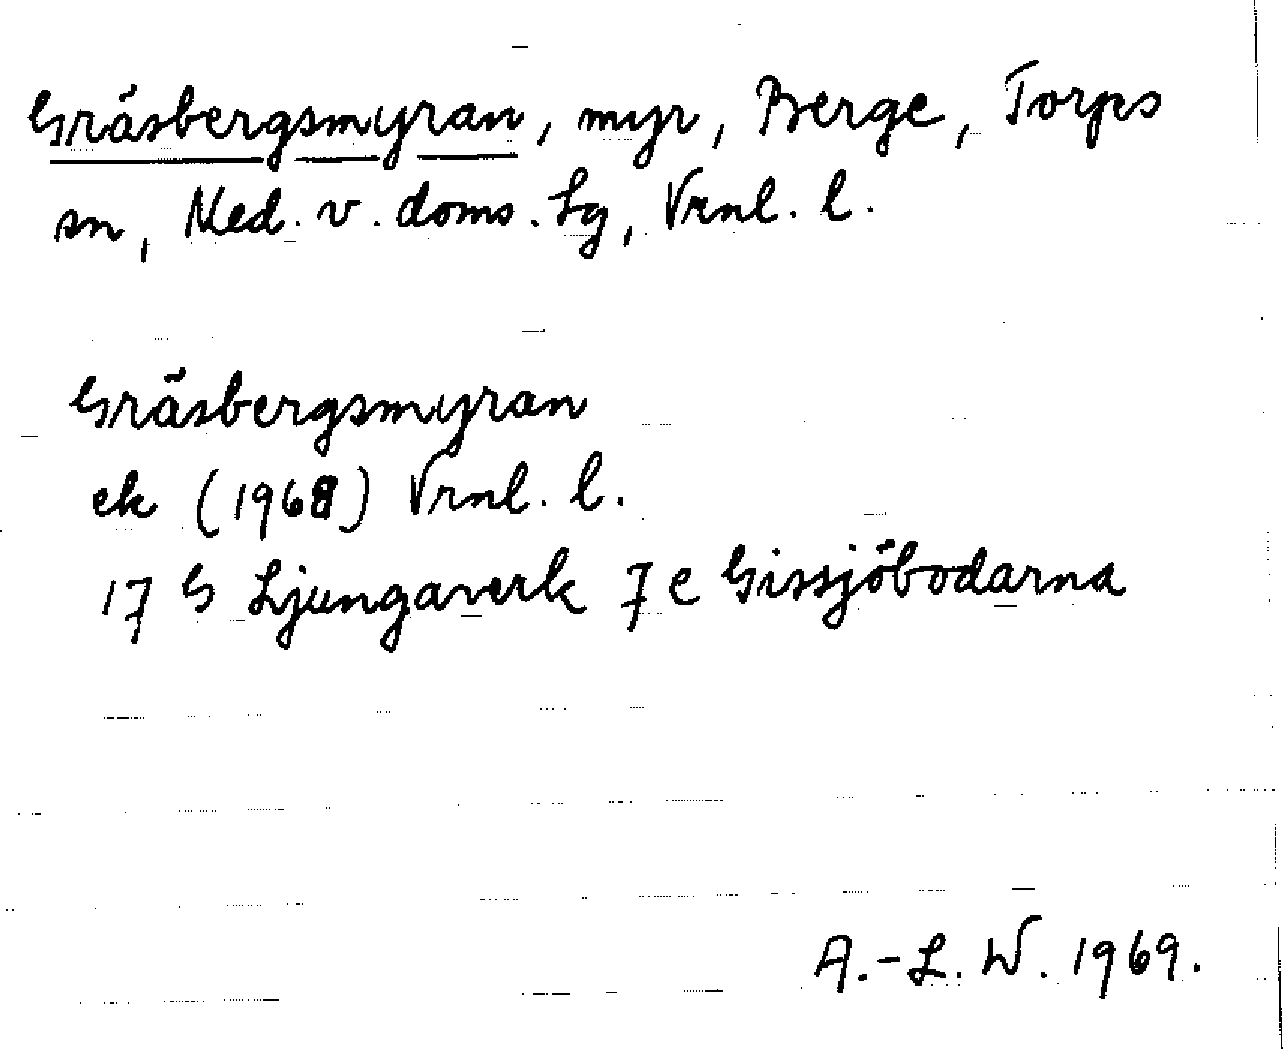 Gräsbergsmyran, myr, Berge, Torps
sn, Med. v. doms. Lg, Vrnl. l.
Gräsbergsmyran
ek (1968) Vrnl. l.
17 G Ljungaverk 7 e Gissjöbodarna
A.-L. W. 1969.